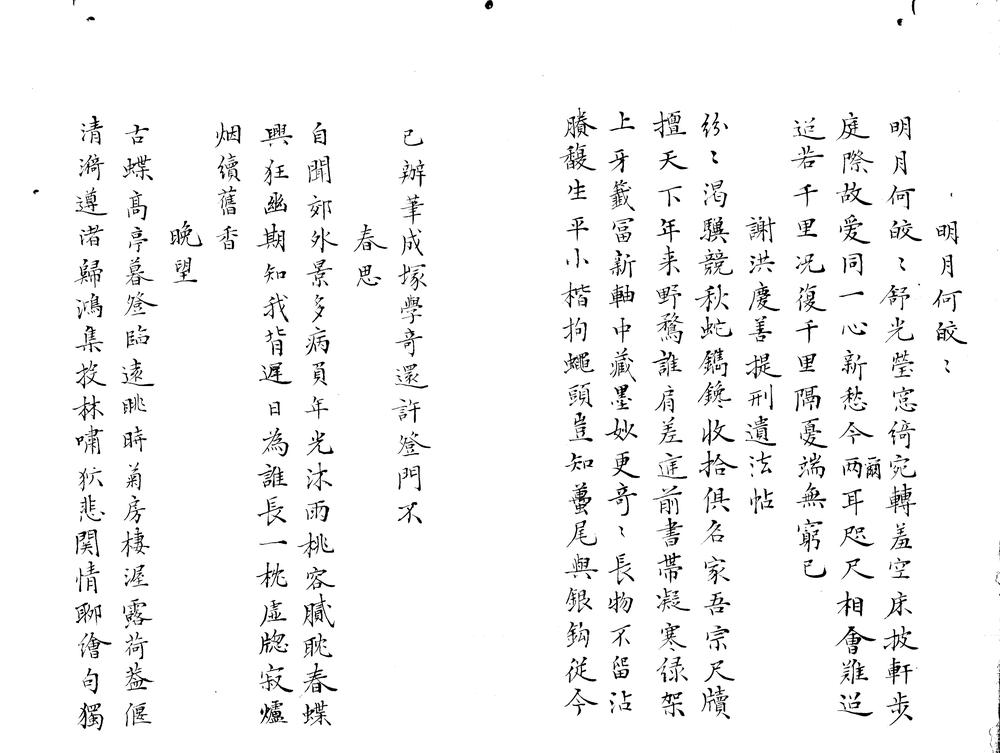 明月何皎〻
明月何皎〻舒光瑩窓綺宛轉羞空床披軒步
庭際故爱同一心新愁今两耳爾咫尺相會難迢
迢若千里况復千里隔憂端無窮已
謝洪慶善提刑遺法帖
紛〻渴驥競秋蛇鐫鑱收拾俱名家吾宗尺牘
擅天下年来野鶩誰肩差庭前書帶凝寒绿架
上牙籤冨新軸中藏墨妙更奇〻長物不留沾
賸馥生平小楷拘蠅頭豈知蠆尾與銀鈎從今
已辦筆成塚學奇還許登門不
春思
自聞郊外景多病負年光沐雨桃容膩眺春蝶
興狂幽期知我背遲日為誰長一枕虚牎寂爐
烟續舊香
晚望
古蝶髙亭暮登臨遠眺時菊房棲渥露荷蓋偃
清漪遵渚歸鴻集投林嘯狖悲関情聊繪句獨